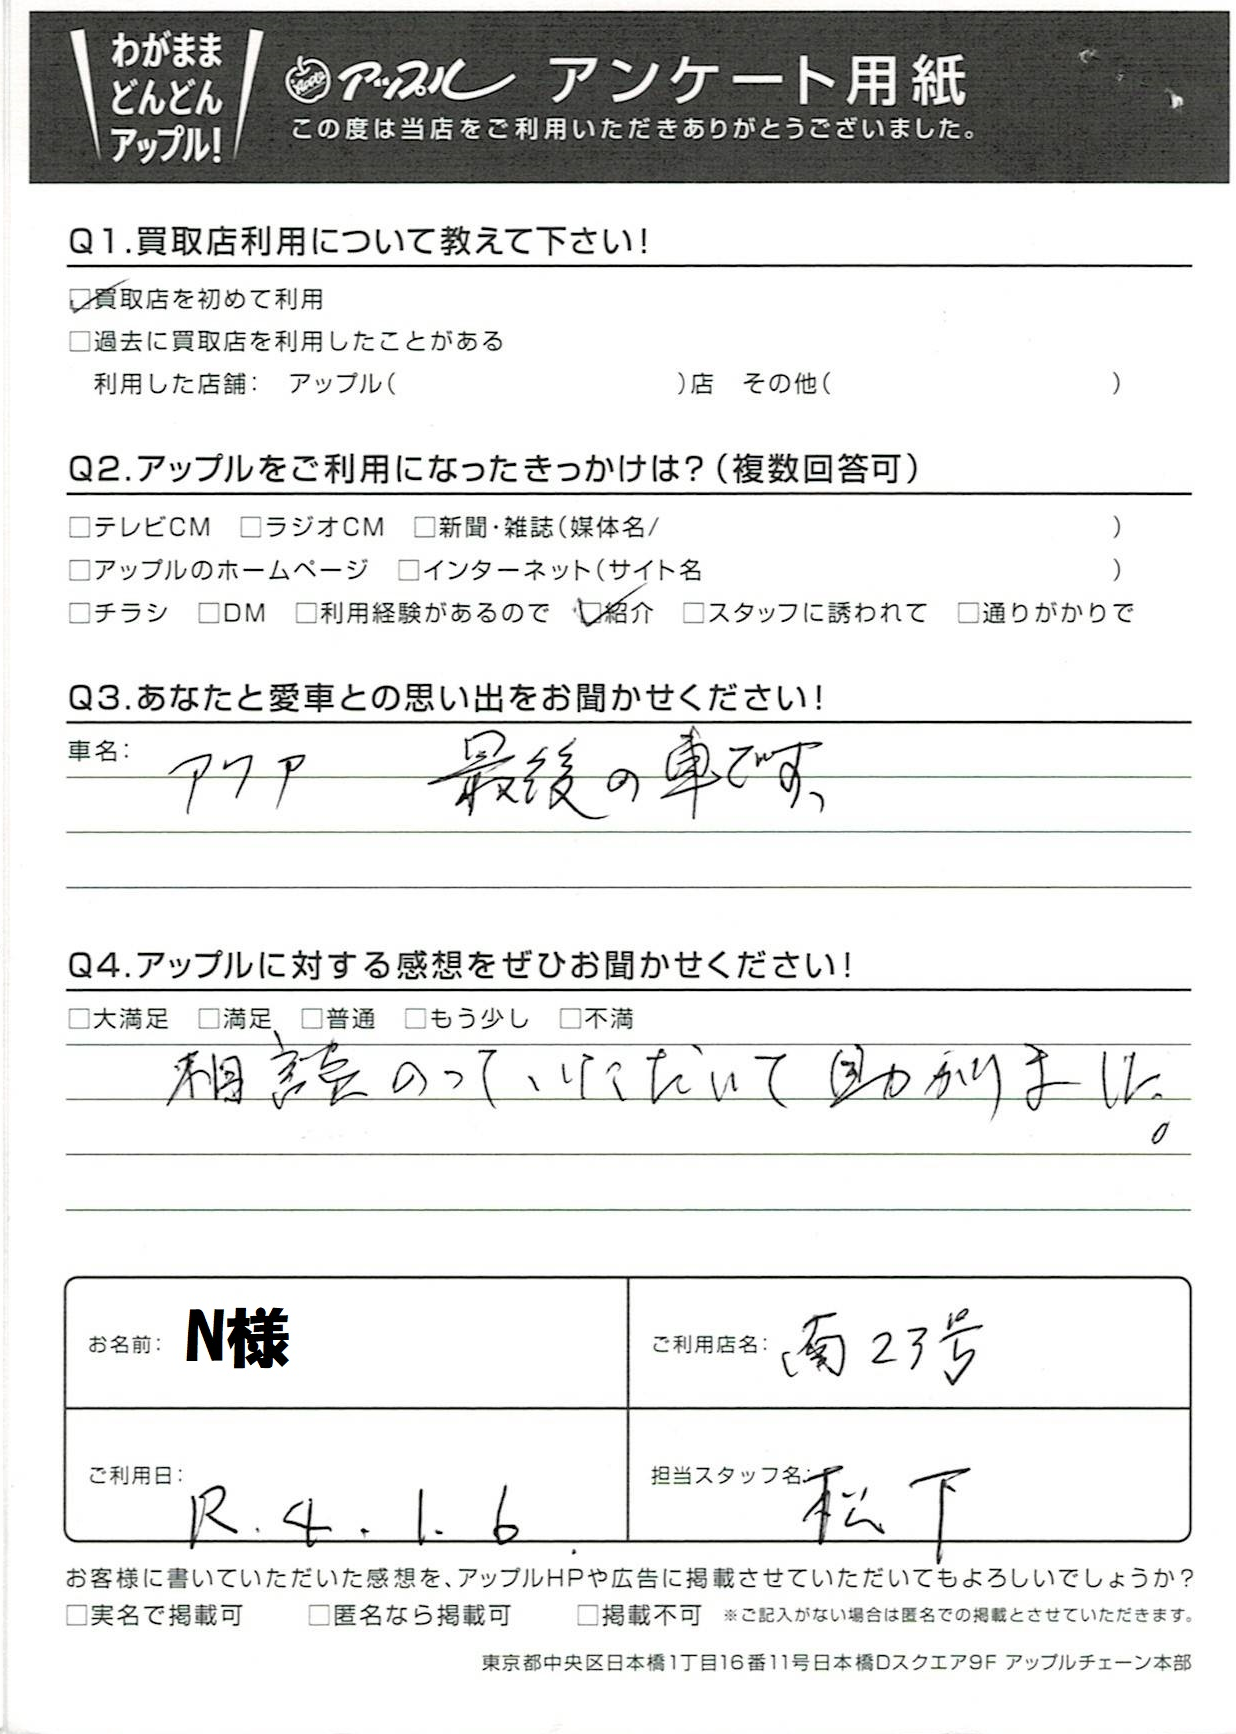 わがまま
どんどん
アップル!
Apple アップル アンケート用紙
この度は当店をご利用いただきありがとうございました。
Q1.買取店利用について教えて下さい!
☑買取店を初めて利用
□過去に買取店を利用したことがある
利用した店舗: アップル( )店 その他( )
Q2.アップルをご利用になったきっかけは?(複数回答可)
□テレビCM □ラジオCM □新聞・雑誌(媒体名/ )
□アップルのホームページ □インターネット(サイト名 )
□チラシ □DM □利用経験があるので ☑紹介 □スタッフに誘われて □通りがかりで
Q3.あなたと愛車との思い出をお聞かせください!
車名: アクア 最後の車です、
Q4.アップルに対する感想をぜひお聞かせください!
□大満足 □満足 □普通 □もう少し □不満
相談のっていただいて助かりました。
お名前: N様
ご利用店名: 南23号
ご利用日: R.4.1.6
担当スタッフ名: 松下
お客様に書いていただいた感想を、アップルHPや広告に掲載させていただいてもよろしいでしょうか?
□実名で掲載可 □匿名なら掲載可 □掲載不可 ※ご記入がない場合は匿名での掲載とさせていただきます。
東京都中央区日本橋1丁目16番11号日本橋Dスクエア9F アップルチェーン本部